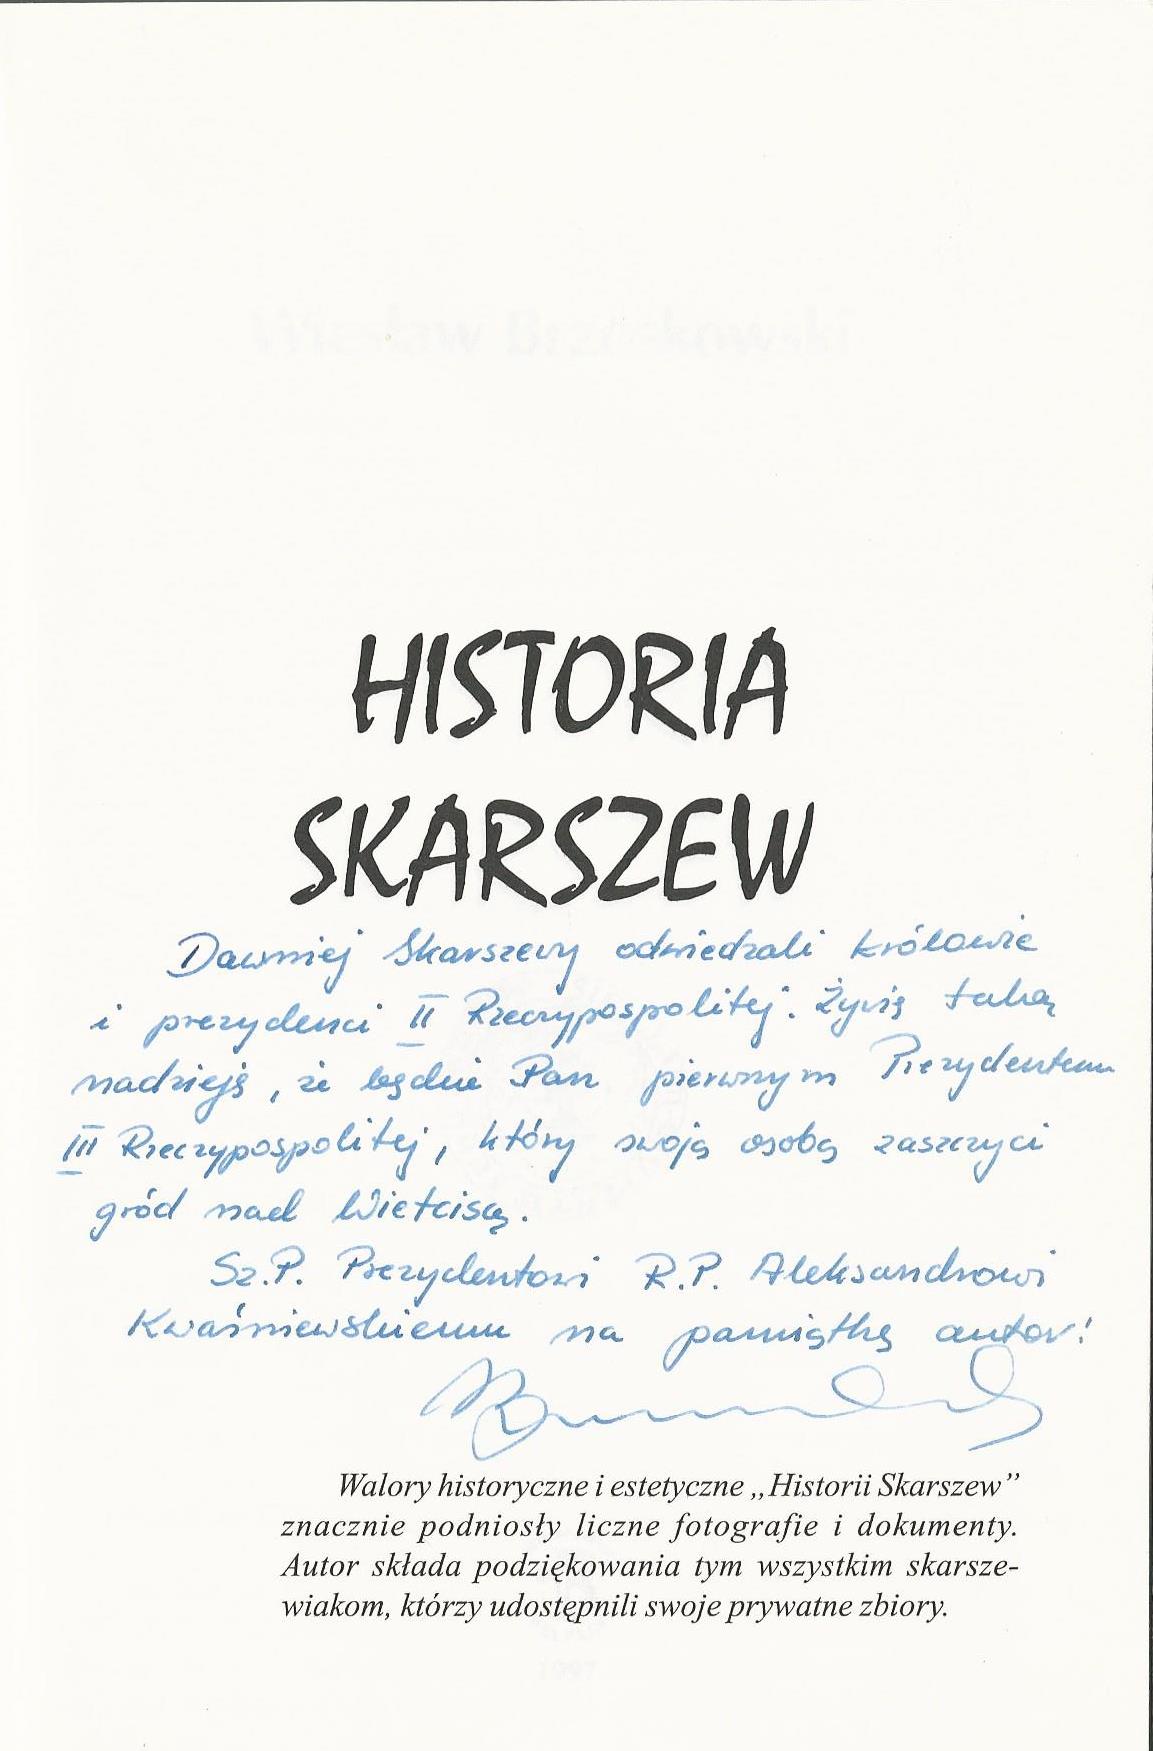 HISTORIA
SKARSZEW
Dawniej Skarszewy odwiedzali królowie
i prezydenci II Rzeczypospolitej. Żywię taką
nadzieję, że będzie Pan pierwszym Prezydentem
III Rzeczypospolitej, który swoją osobą zaszczyci
gród nad Wietcisą.
Sz.P. Prezydentowi R.P. Aleksandrowi
Kwaśniewskiemu na pamiątkę autor!
Walory historyczne i estetyczne „Historii Skarszew”
znacznie podniosły liczne fotografie i dokumenty.
Autor składa podziękowania tym wszystkim skarsze-
wiakom, którzy udostępnili swoje prywatne zbiory.